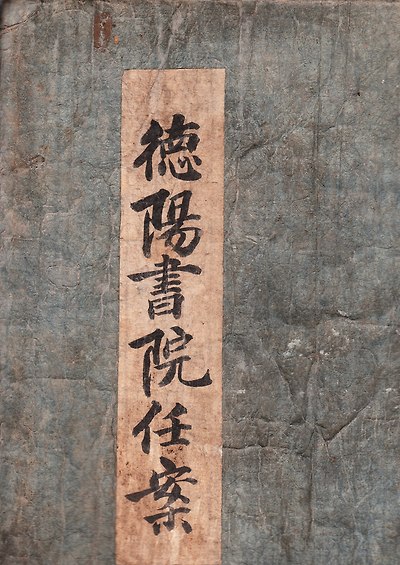 德陽書院任案